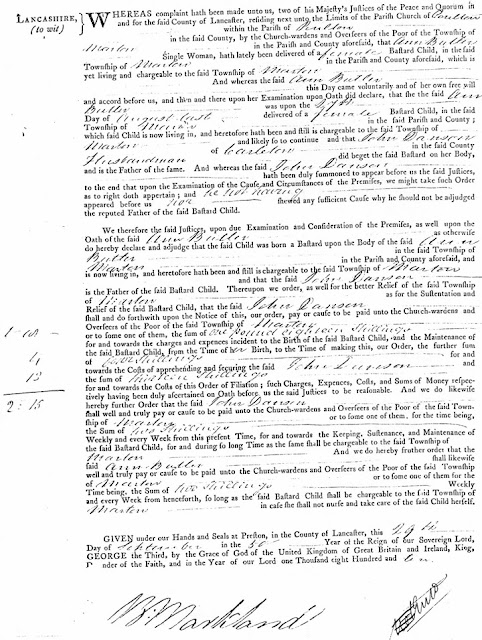 LANCASHIRE,
(to wit)
WHEREAS complaint hath been made unto us, two of his Majesty's Justices of the Peace and Quorum in
and for the said County of Lancaster, residing next unto the Limits of the Parish Church of Poulton
within the Parish of Poulton
in the said County, by the Church-wardens and Overseers of the Poor of the Township of
Marton in the Parish and County aforesaid, that Ann Butler
Single Woman, hath lately been delivered of a female Bastard Child, in the said
Township of Marton in the Parish and County aforesaid, which is
yet living and chargeable to the said Township of Marton
And whereas the said Ann Butler
this Day came voluntarily and of her own free will
and accord before us, and then and there upon her Examination upon Oath did declare, that she the said Ann
Butler was upon the 27th
Day of August last delivered of a female Bastard Child, in the said
Township of Marton in the said Parish and County;
which said Child is now living, and heretofore hath been and still is chargeable to the said Township of
Marton and likely so to continue and that John Danson
of Carleton in the said County
Husbandman did beget the said Bastard on her Body,
and is the Father of the same. And whereas the said John Danson
hath been duly summoned to appear before us the said Justices,
to the end that upon the Examination of the Cause and Circumstances of the Premises, we might take such Order
as to right doth appertain; and he not having
appeared before us nor shewed any sufficient Cause why he should not be adjudged
the reputed Father of the said Bastard Child.
We therefore the said Justices, upon due Examination and Consideration of the Premises, as well upon the
Oath of the said Ann Butler as otherwise
do hereby declare and adjudge that the said Child was born a Bastard upon the Body of the said Ann
Butler in the said Township of
Marton in the Parish and County aforesaid, and
is now living in, and heretofore hath been and still is chargeable to the said Township of Marton
and that the said John Danson
is the Father of the said Bastard Child. Thereupon we order, as well for the better Relief of the said Township
of Marton as for the Sustentation and
Relief of the said Bastard Child, that the said John Danson
shall and do forthwith upon the Notice of this, our order, pay or cause to be paid unto the Church-wardens and
Overseers of the Poor of the said Township of Marton
or to some one of them, the sum of one Pound eighteen Shillings
for and towards the charges and expences incident to the Birth of the said Bastard Child, and the Maintenance of
the said Bastard Child, from the Time of her Birth, to the Time of making this, our Order, the further sum
of four Shillings for and
towards the Costs of apprehending and securing the said John Danson and
the sum of thirteen Shillings
for and towards the Costs of this Order of Filiation; such Charges, Expences, Costs, and Sums of Money respec-
tively having been duly ascertained on Oath before us, the said Justices to be reasonable. And we do likewise
hereby further Order that the said John Danson
shall well and truly pay or cause to be paid unto the Church-wardens and Overseers of the Poor of the said Town-
ship of Marton or to some one of them, for the time being,
the Sum of two Shillings
Weekly and every Week from this present Time, for and towards the Keeping, Sustenance, and Maintenance of
the said Bastard Child, for and during so long Time as the same shall be chargeable to the said Township of
Marton And we do hereby further order that the
said Ann Butler shall likewise
well and truly pay or cause to be paid unto the Church-wardens and Overseers of the Poor of the said Township
of Marton or to some one of them for the
Time being, the Sum of two Shillings Weekly
and every Week from henceforth, so long as the said Bastard Child shall be chargeable to the said Township of
Marton in case she shall not nurse and take care of the said Child herself.
1 - 18
4
13
2 : 15
GIVEN under our Hands and Seals at Preston, in the County of Lancaster, this 29th
Day of September in the 50 Year of the Reign of our Sovereign Lord,
GEORGE the Third, by the Grace of God of the United Kingdom of Great Britain and Ireland, King,
D nder of the Faith, and in the Year of our Lord One Thousand eight Hundred and ten.
B. Markland